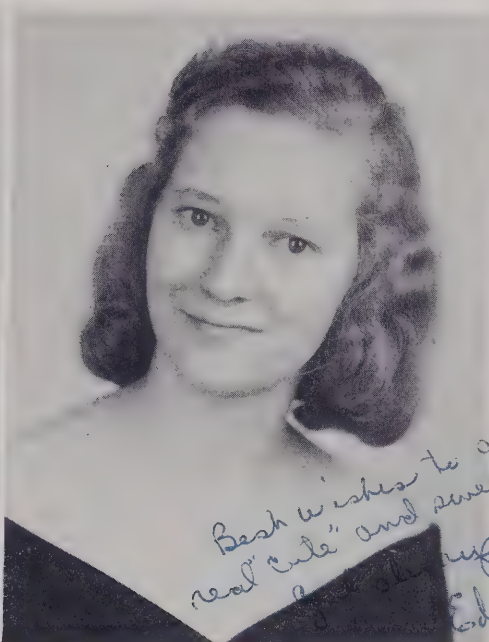 Best wishes to a
real "cute" and swe
Ed